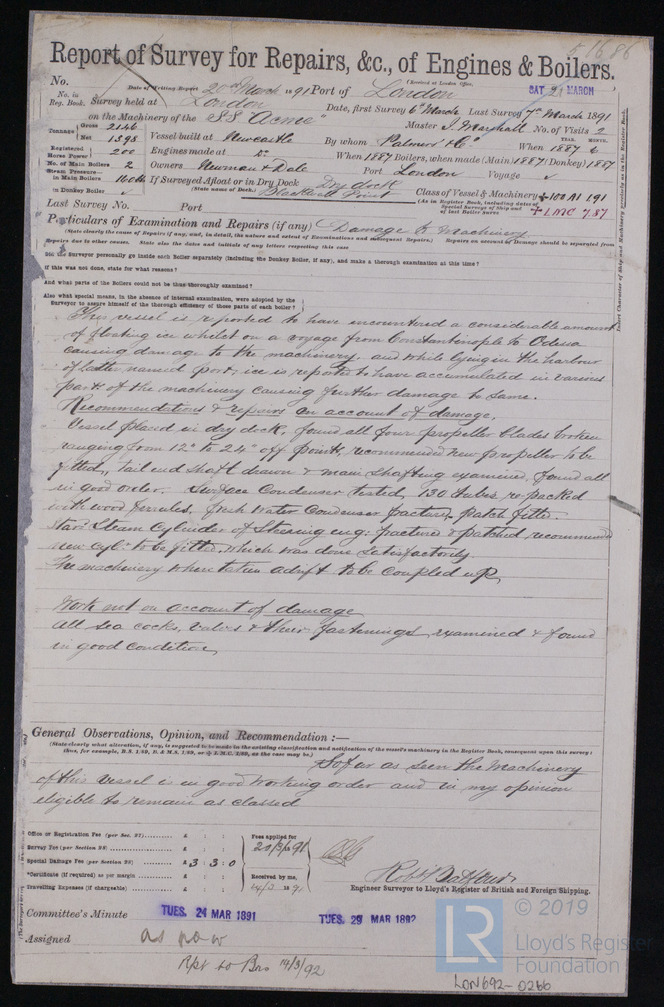 5 1686
Report of Survey for Repairs, &c., of Engines & Boilers.
(Received at London Office,
No.
Date of Writing Report 20th March 1891 Port of London
SAT 21 MARCH
No. in Reg. Book. Survey held at London
Date, first Survey 6th March Last Survey 7th March 1891
on the Machinery of the SS "Acme"
Master J. Marshall No. of Visits 2
Tonnage Gross 2166
Net 1398
Vessel built at Newcastle By whom Palmers' Co. When 1887 6
YEAR. MONTH.
Registered Horse Power 200 Engines made at Do When 1887 Boilers, when made (Main) 1887 (Donkey) 1887
No. of Main Boilers 2 Owners Newman & Dale Port London Voyage ✓
Steam Pressure in Main Boilers 160 lb If Surveyed Afloat or in Dry Dock Dry dock
(State name of Dock.) Blackwall Point
in Donkey Boiler ✓
Class of Vessel & Machinery +100 A1 1,91
(As in Register Book, including dates of Special Surveys of Ship and of last Boiler Survey +LMC 7.87
Last Survey No. Port
Particulars of Examination and Repairs (if any) Damage to Machinery
(State clearly the cause of Repairs if any, and, in detail, the nature and extent of Examinations and subsequent Repairs.) Repairs on account of Damage should be separated from
Repairs due to other causes. State also the dates and initials of any letters respecting this case
Did the Surveyor personally go inside each Boiler separately (including the Donkey Boiler, if any), and make a thorough examination at this time?
If this was not done, state for what reasons?
And what parts of the Boilers could not be thus thoroughly examined?
Also what special means, in the absence of internal examination, were adopted by the
Surveyor to assure himself of the thorough efficiency of those parts of each boiler?
Insert Character of Ship and Machinery precisely as in the Register Book.
This vessel is reported to have encountered a considerable amount
of floating ice whilst on a voyage from Constantinople to Odessa
causing damage to the machinery. and while lying in the harbour
of latter named port, ice is reported to have accumulated in various
parts of the machinery causing further damage to same.
Recommendations & repairs on account of damage.
Vessel placed in dry dock, found all four propeller blades broken
ranging from 12" to 24" off points, recommended new propeller to be
fitted, tail end shaft drawn & main shafting examined, found all
in good order. Surface Condenser tested, 130 tubes re-packed
with wood ferrules, fresh water Condenser fractured, patch fitted.
Starb Steam Cylinder of Steering eng: fractured & patched, recommend
new cylr to be fitted, which was done satisfactorily.
The machinery where taken adrift to be coupled up
Work not on account of damage
All sea cocks, valves & their fastenings examined & found
in good condition,
General Observations, Opinion, and Recommendation :—
(State clearly what alteration, if any, is suggested to be made in the existing classification and notification of the vessel's machinery in the Register Book, consequent upon this survey:
thus, for example, B.S. 1/89, B. & M.S. 1/89, or + L.M.C. 1/89, as the case may be.)
So far as seen the Machinery
of this vessel is in good working order and in my opinion
eligible to remain as classed
Office or Registration Fee (per Sec. 27) £ : :
Fees applied for
Survey Fee (per Section 28) £ : :
20/3/1891
Special Damage Fee (per Section 28) £ 3 : 3 : 0
*Certificate (if required) as per margin £ : :
Received by me,
Travelling Expenses (if chargeable) £ : :
Engineer Surveyor to Lloyd's Register of British and Foreign Shipping.
Committee's Minute TUES. 24 MAR 1891
TUES. 29 MAR 1892
Assigned as now
Rpt to Bro 14/3/92
LON692-0266
LR
© 2019
Lloyd's Register
Foundation